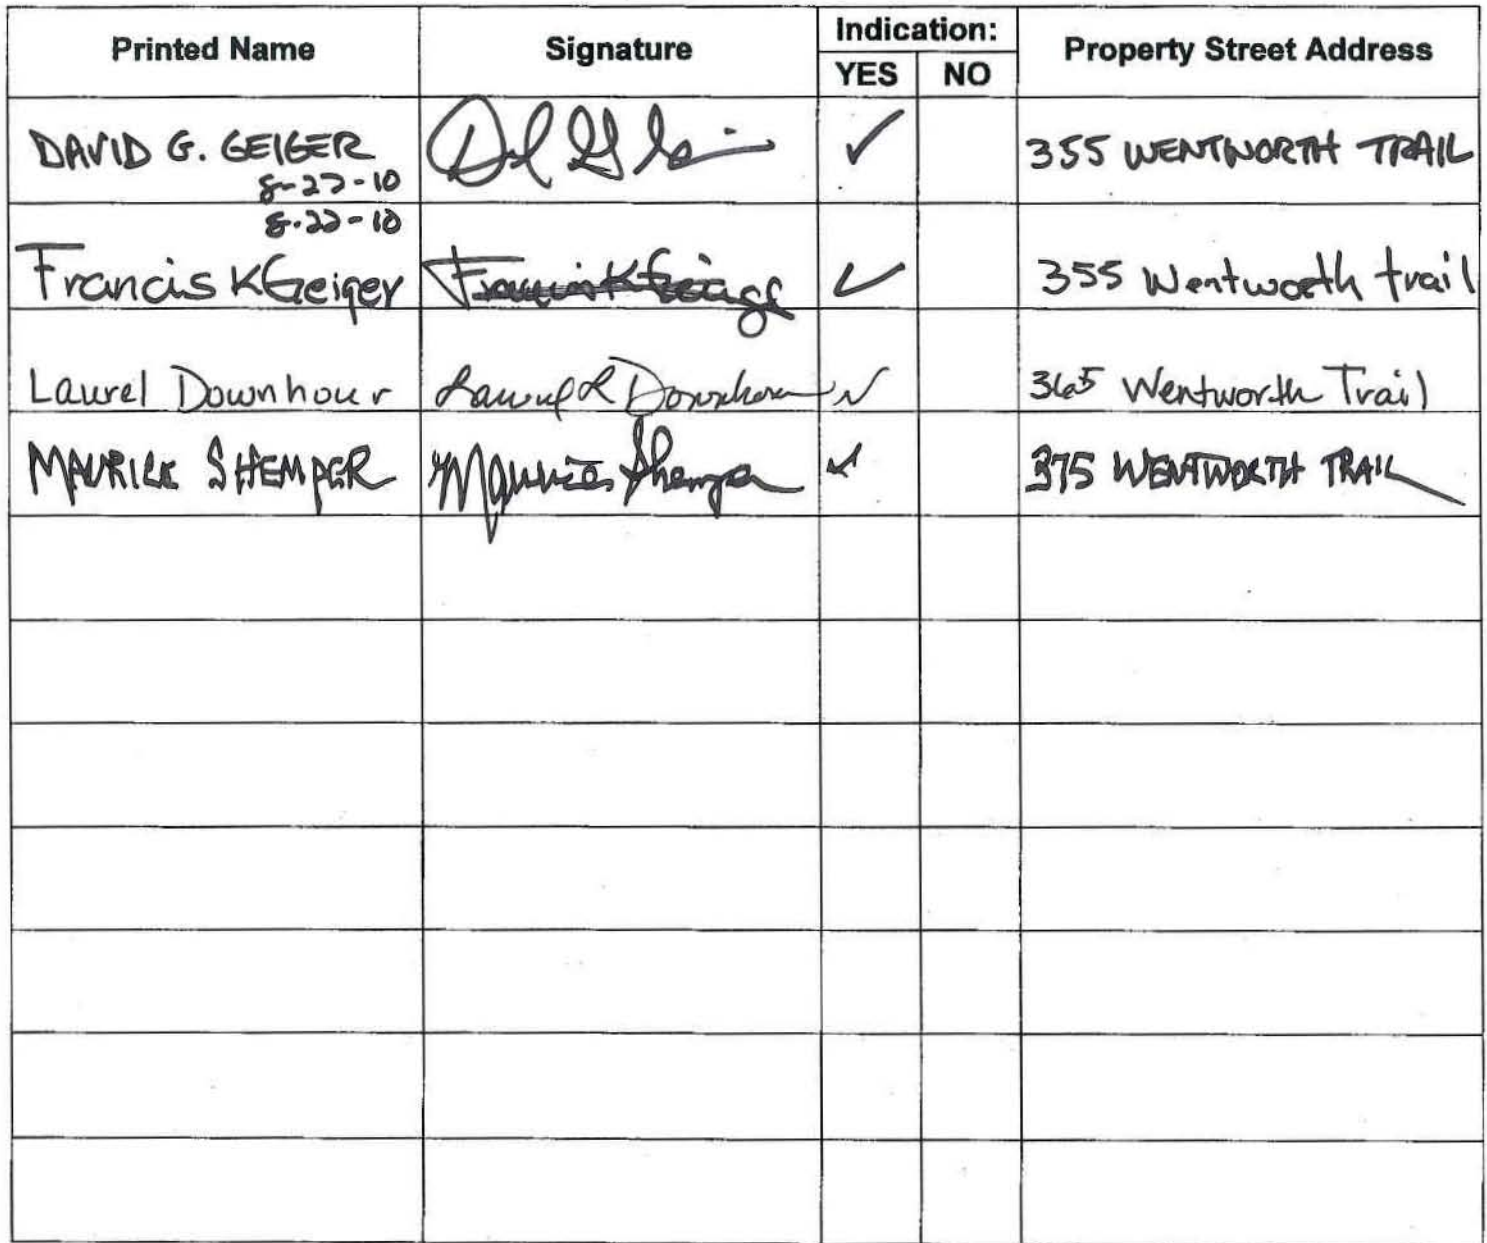 Printed Name Signature Indication: Property Street Address
YES NO
DAVID G. GEIGER 355 WENTWORTH TRAIL
8-22-10
8-22-10
Francis K Geiger Francis K Geiger 355 Wentworth trail
Laurel Downhour Laurel L Downhour 365 Wentworth Trail
MAURICE SHEMPER Maurice Shemper 375 WENTWORTH TRAIL